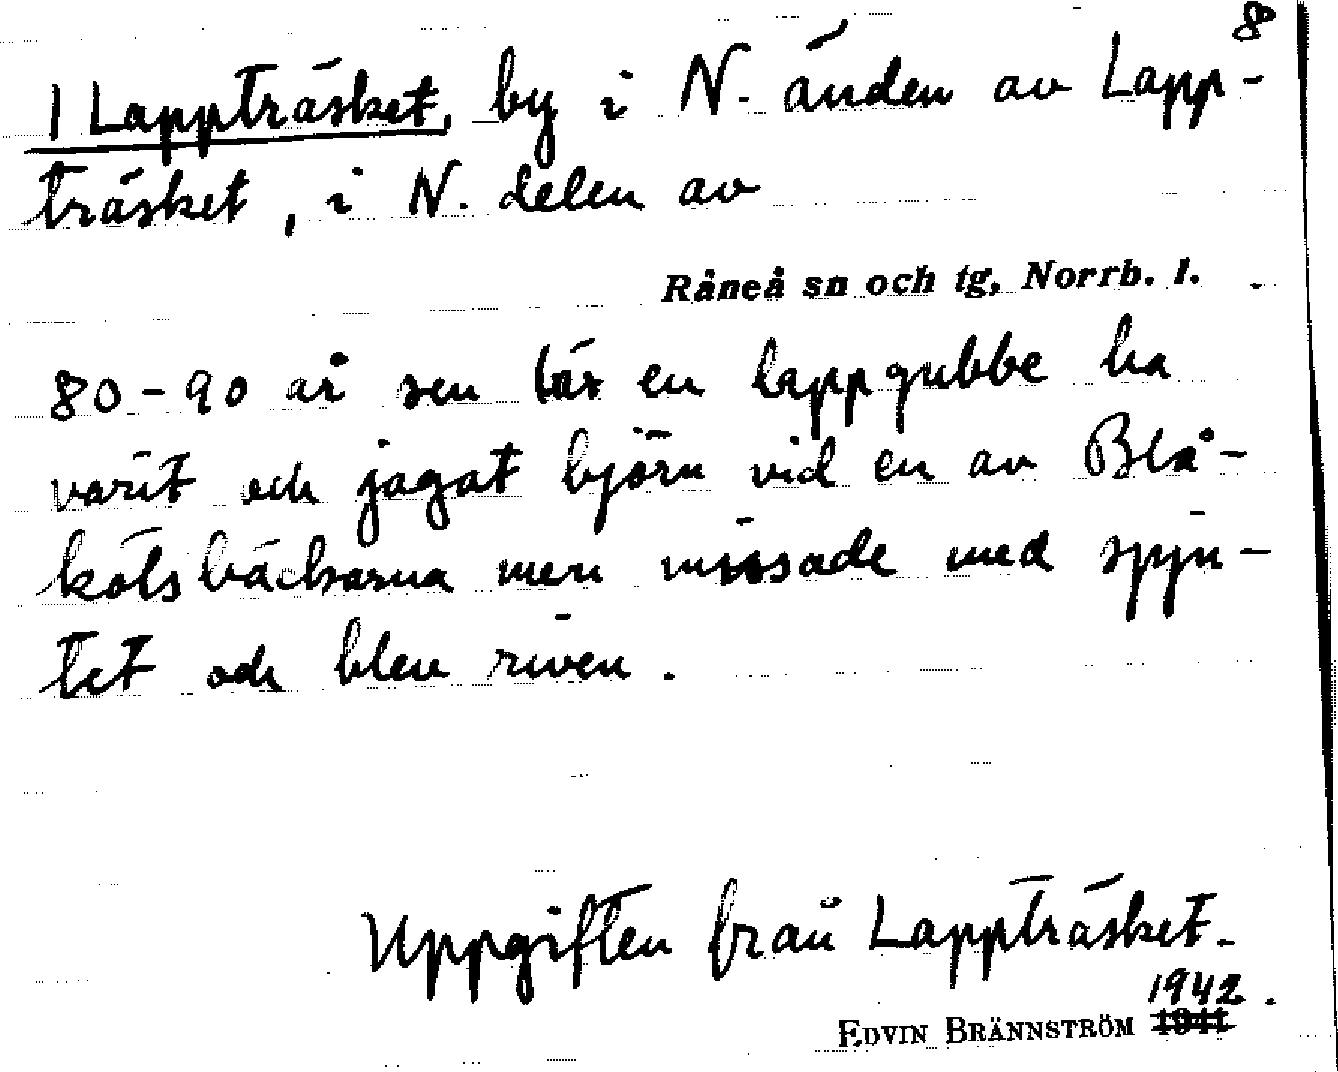 8
1 Lappträsket, by i N. änden av Lapp-
träsket, i N. delen av
Råneå sn och tg, Norrb. l.
80-90 år sen lär en lappgubbe ha
varit och jagat björn vid en av Blå-
kölsbäckarna men missade med spju-
tet och blev riven.
Uppgiften från Lappträsket.
1942.
EDVIN BRÄNNSTRÖM 1941